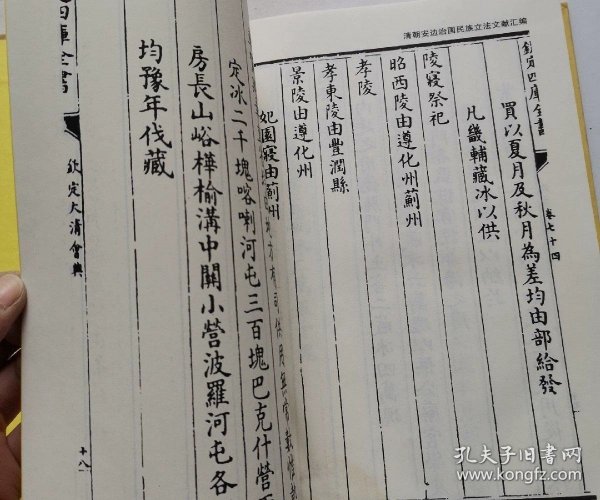 清朝安边治国民族立法文献汇编
欽定四庫全書
卷七十四
買以夏月及秋月為差均由部給發
凡畿輔藏冰以供
陵寢祭祀
昭西陵由遵化州薊州
孝陵
孝東陵由豐潤縣
景陵由遵化州
妃園寢由薊州
定冰二千塊喀喇河屯三百塊巴克什營
房長山峪樺榆溝中關小營波羅河屯各
均豫年伐藏
四庫全書
欽定大清會典
十八
孔夫子旧书网
www.kongfz.com